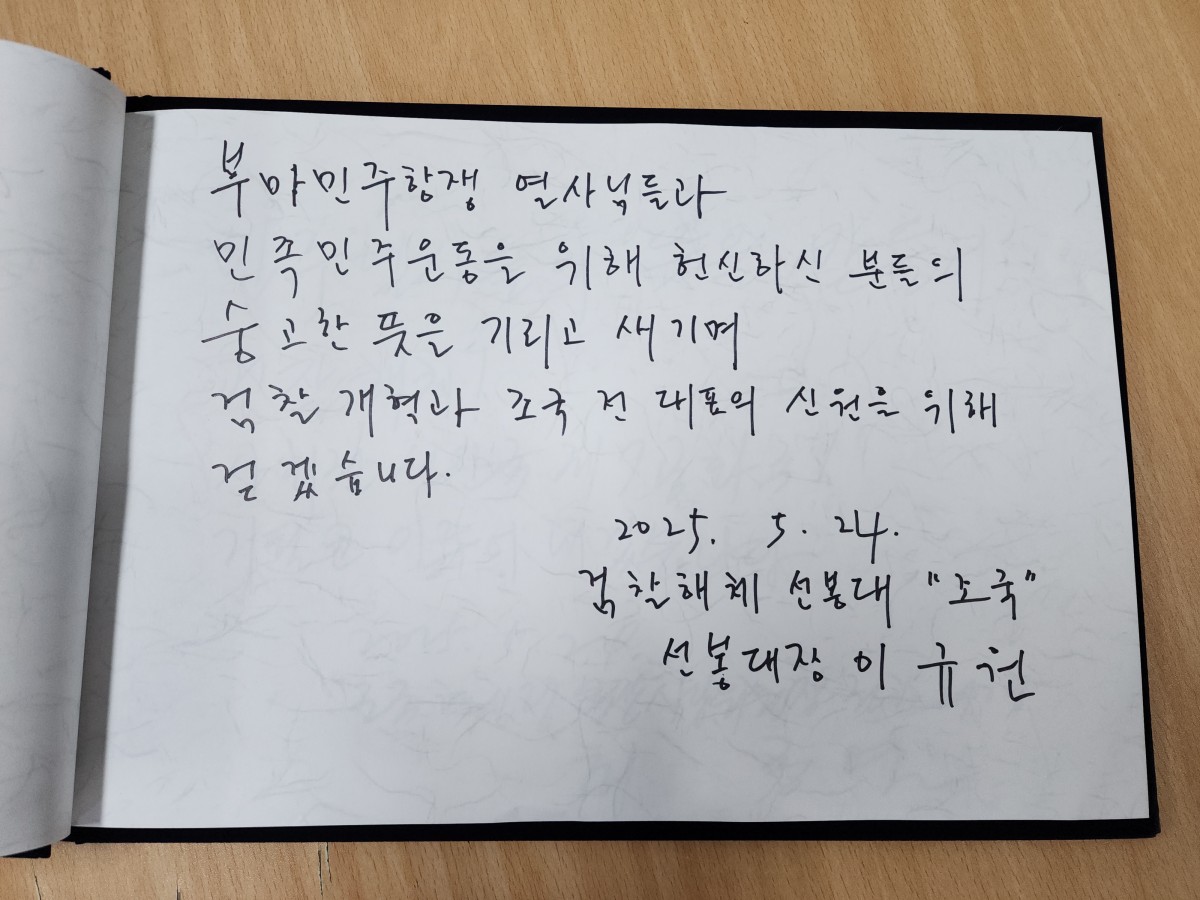 부마민주항쟁 열사님들과
민족민주운동을 위해 헌신하신 분들의
숭고한 뜻을 기리고 새기며
검찰개혁과 조국 전 대표의 신원을 위해
걷겠습니다.
2025. 5. 24.
검찰해체 선봉대 "조국"
선봉대장 이규현